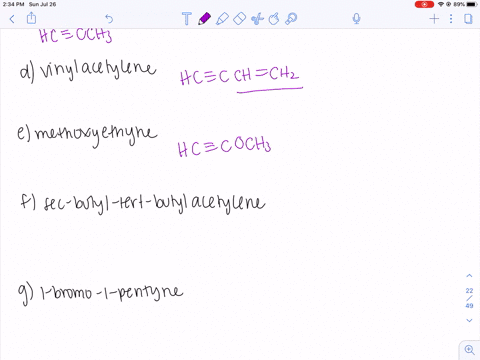 2:34 PM Sun Jul 26
89%
HC≡CCH3
d) vinylacetylene
HC≡CCH=CH2
e) methoxyethyne
HC≡COCH3
f) sec-butyl-tert-butylacetylene
g) 1-bromo-1-pentyne
22
/
49